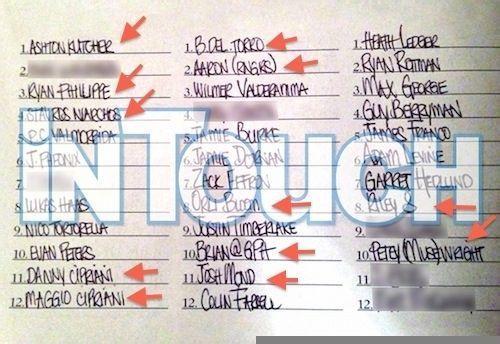 1. ASHTON KUTCHER
2.
3. RYAN PHILLIPPE
4. STAVROS NIARCHOS
5. P.C. VALMORBIDA
6. J. PHEONIX
7.
8. LUKAS HAAS
9. NICO TORTORELLA
10. EVAN PETERS
11. DANNY CIPRIANI
12. MAGGIO CIPRIANI
1. B. DEL TORRO
2. AARON (RNGRS)
3. WILMER VALDERAMMA
5. JAMIE BURKE
6. JAMIE DORNAN
7. ZACK EFFRON
8. ORLY BLOOM
9. JUSTIN TIMBERLAKE
10. BRIAN @ GPA
11. JOSH MOND
12. COLIN FARRELL
1. HEATH LEDGER
2. RYAN ROTTMAN
3. MAX GEORGE
4. GUY BERRYMAN
5. JAMES FRANCO
6. ADAM LEVINE
7. GARRET HEDLUND
8. RILEY S
9.
10. PETEY (MUSE) WRIGHT
11.
12.
inTouch